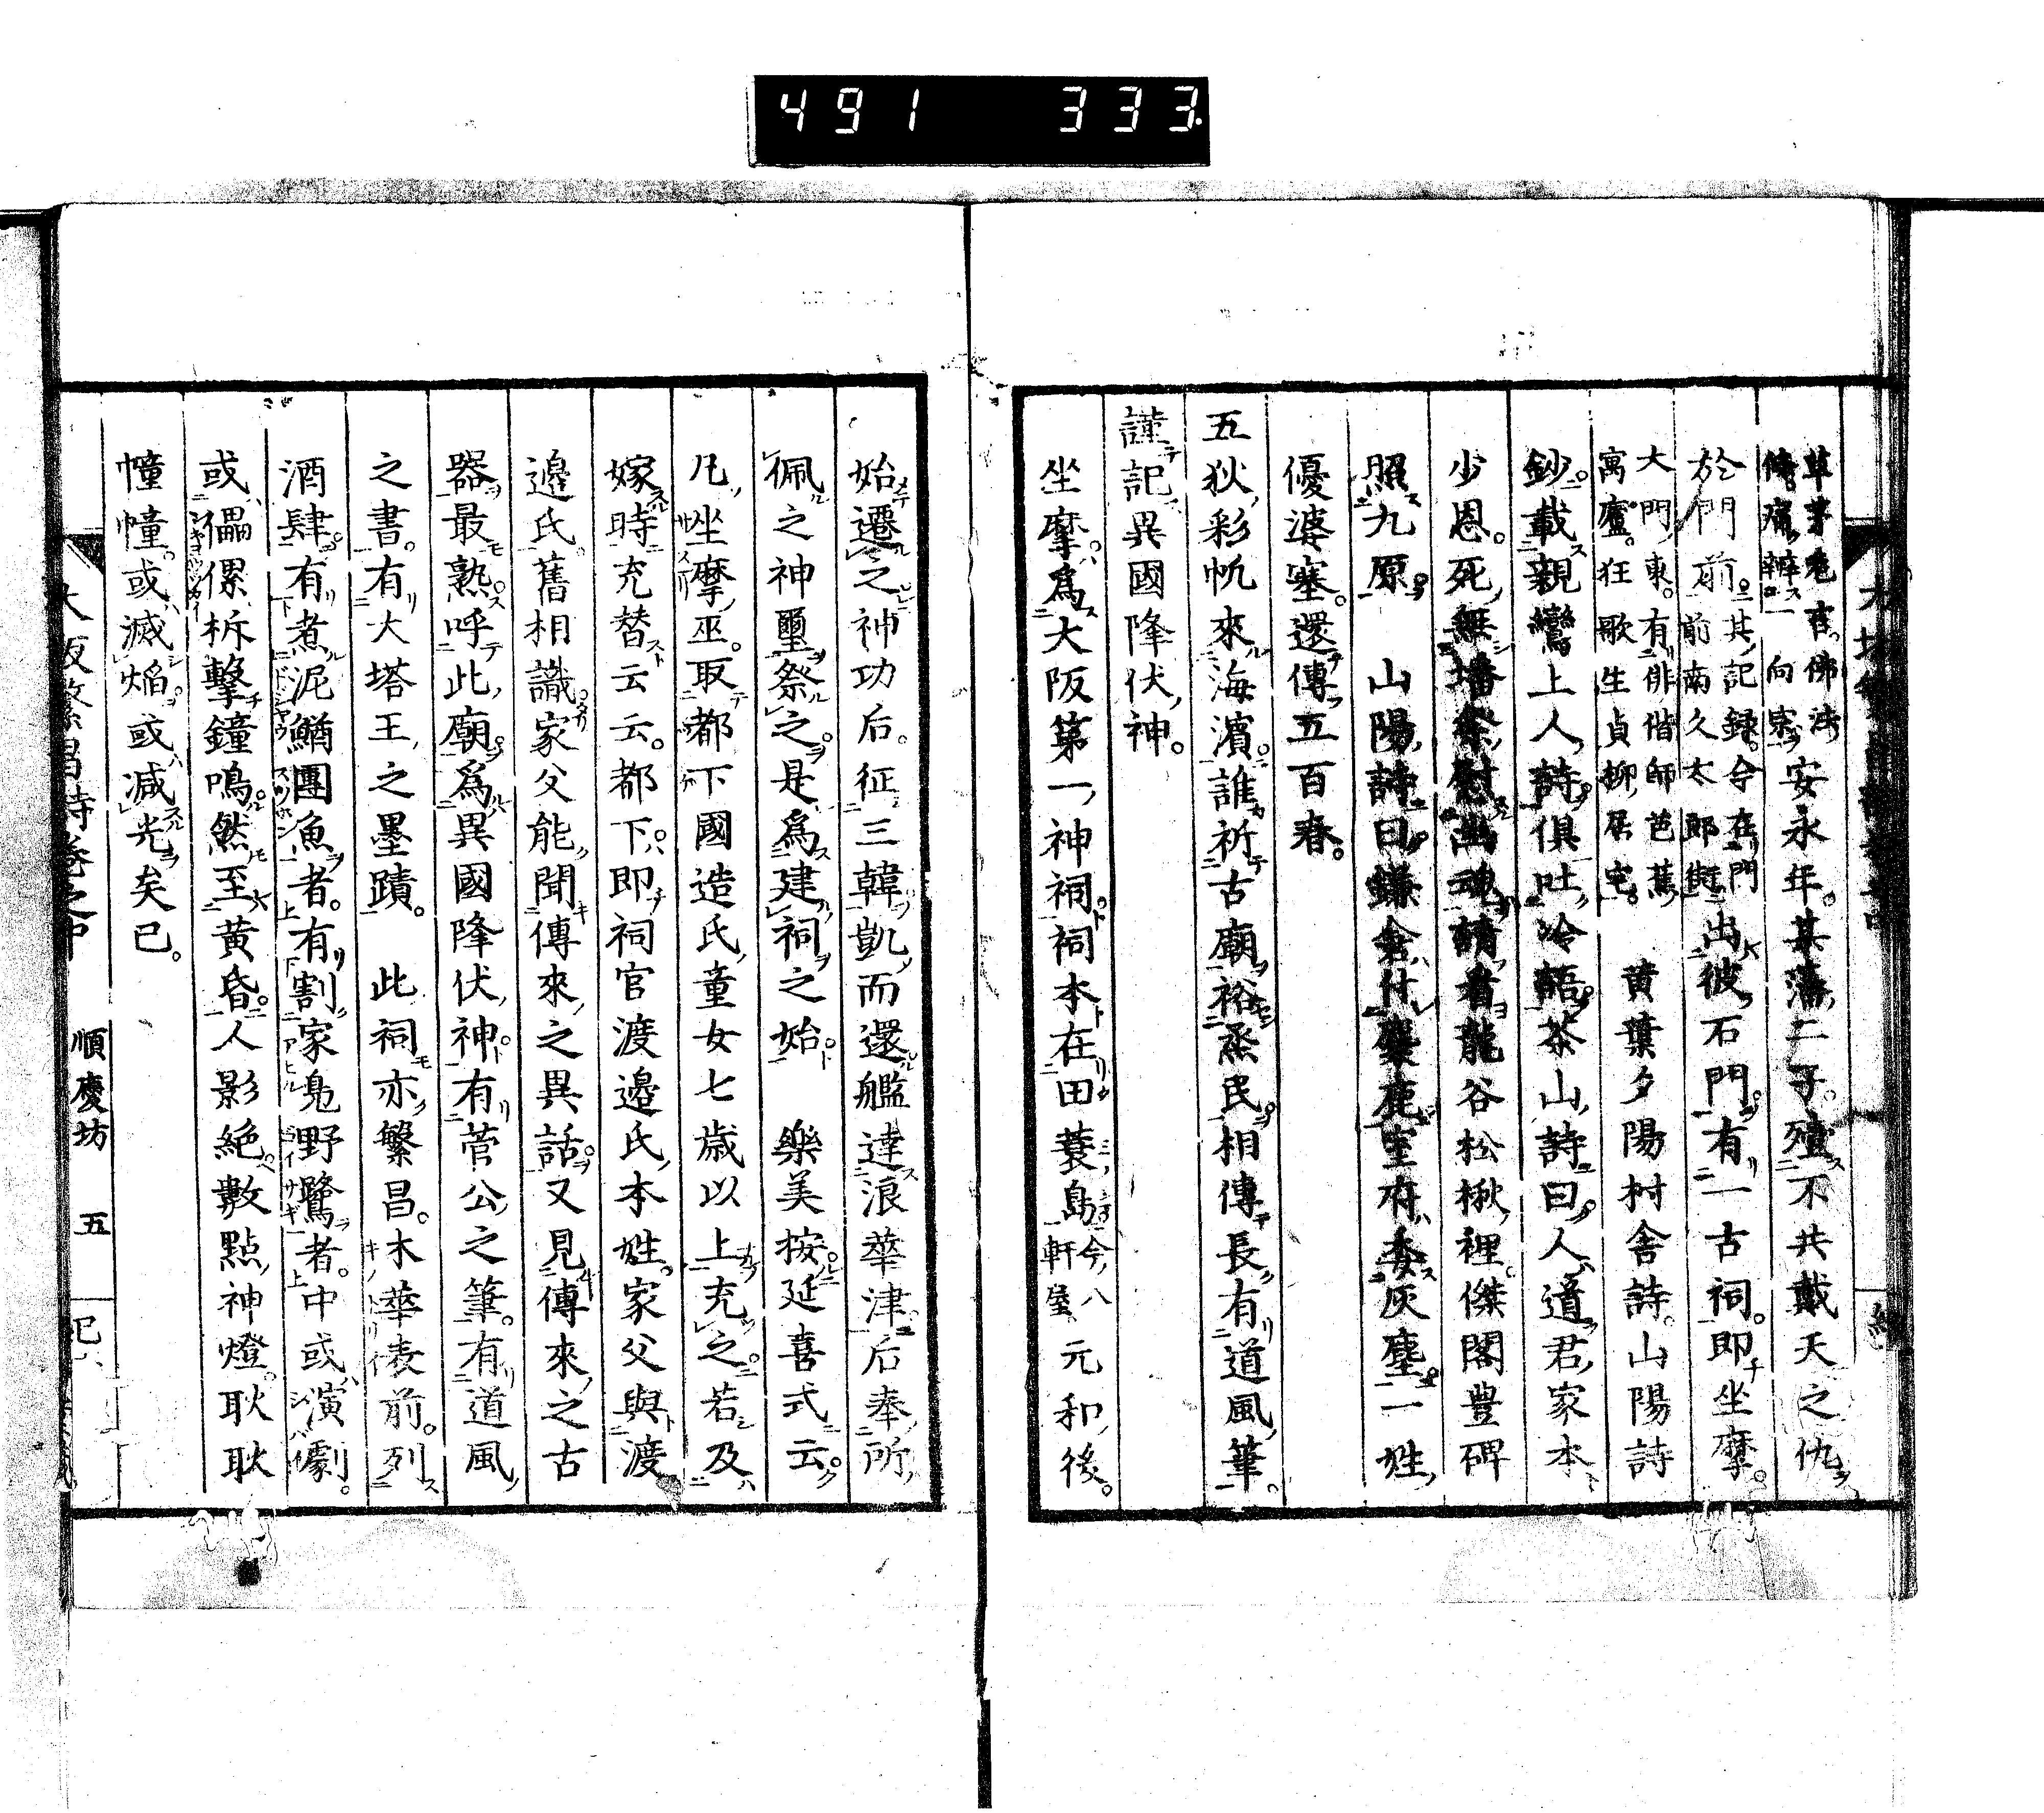 491 333
於門前其記録今在門前南久太郎街出彼石門有一古祠。即坐摩。
大門東有俳偕師芭蕉寓廬。狂歌生貞柳居宅。 黄葉夕陽村舍詩。山陽詩
鈔。載親鸞上人詩俱吐冷語。茶山詩曰。人道君家本
少恩。死無墦祭慰幽魂。請看龍谷松楸裡。傑閣豊碑
照九原 山陽詩曰。鎌倉什麋鹿室府委灰塵。一姓
優婆塞。還傳五百春。
五狄彩帆來海濱。誰祈古廟裕烝民。相傳長有道風筆。
謹記異國降伏神。
坐摩爲大阪第一神祠。祠本在田蓑島今八軒屋元和後。
始遷之。神功后征三韓凱而還艦達浪華津。后奉所
佩之神璽祭之。是爲建祠之始 樂美按延喜式云。
凡坐摩巫。取都下國造氏童女七歳以上充之。若及
嫁時充替云云。都下即祠官渡邉氏本姓。家父與渡
邉氏舊相識。家父能聞傳來之異話。又見傳來之古
器最熟。呼此廟爲異國降伏神。有菅公之筆。有道風
之書。有大塔王之墨蹟。 此祠亦繁昌。木華表前。列
酒肆。有煮泥鰌團魚者。有割家鳧野鷺者。中或演劇。
或儡傫。柝擊鐘鳴。然至黄昏。人影絶。數點神燈。耿耿
幢幢。或滅焰。或減光矣已。
大阪繁昌詩卷之中 順慶坊 五